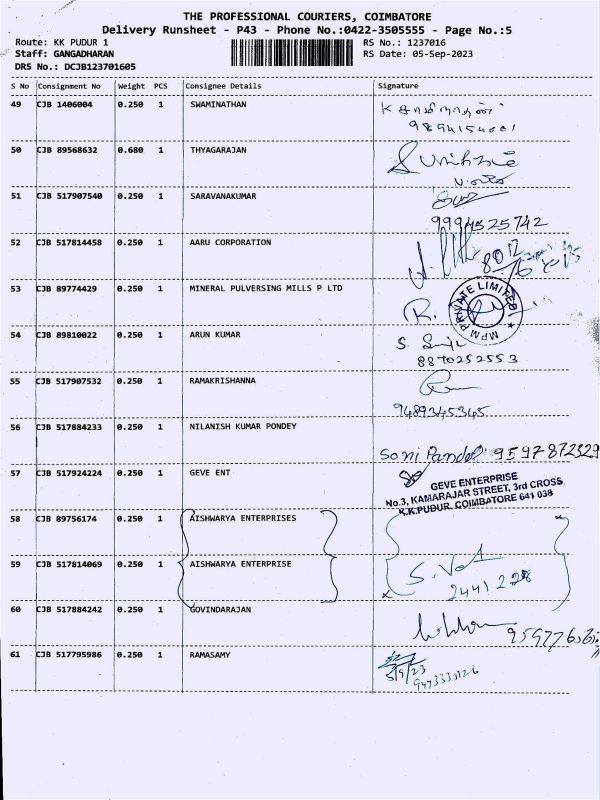 THE PROFESSIONAL COURIERS, COIMBATORE
Delivery Runsheet - P43 - Phone No.:0422-3505555 - Page No.:5
Route: KK PUDUR 1 RS No.: 1237016
Staff: GANGADHARAN RS Date: 05-Sep-2023
DRS No.: DCJB123701605
S No Consignment No Weight PCS Consignee Details Signature
49 CJB 1406004 0.250 1 SWAMINATHAN
9894154001
50 CJB 89568632 0.680 1 THYAGARAJAN
51 CJB 517907540 0.250 1 SARAVANAKUMAR
9994525742
52 CJB 517814458 0.250 1 AARU CORPORATION
53 CJB 89774429 0.250 1 MINERAL PULVERSING MILLS P LTD R.
MPM PRIVATE LIMITED
54 CJB 89810022 0.250 1 ARUN KUMAR S.
8870252553
55 CJB 517907532 0.250 1 RAMAKRISHANNA
9489345345
56 CJB 517884233 0.250 1 NILANISH KUMAR PONDEY
Soni Pandel 9597872329
57 CJB 517924224 0.250 1 GEVE ENT
GEVE ENTERPRISE
No.3, KAMARAJAR STREET, 3rd CROSS
K.K.PUDUR, COIMBATORE 641 038
58 CJB 89756174 0.250 1 AISHWARYA ENTERPRISES
59 CJB 517814069 0.250 1 AISHWARYA ENTERPRISE
2441228
60 CJB 517884242 0.250 1 GOVINDARAJAN
61 CJB 517795986 0.250 1 RAMASAMY
5/9/23